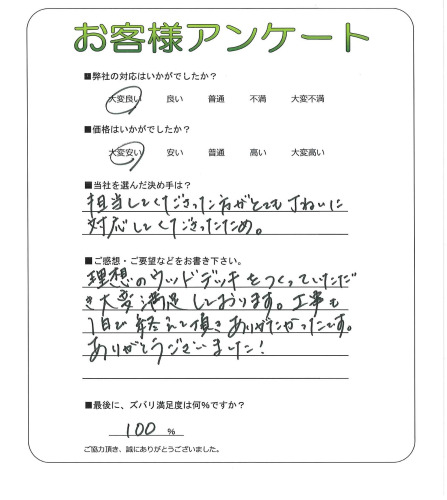 お客様アンケート
■弊社の対応はいかがでしたか？
大変良い 良い 普通 不満 大変不満
■価格はいかがでしたか？
大変安い 安い 普通 高い 大変高い
■当社を選んだ決め手は？
担当してくださった方がとても丁ねいに
対応してくださったため。
■ご感想・ご要望などをお書き下さい。
理想のウッドデッキをつくっていただ
き大変満足しております。工事も
1日で終えて頂きありがたかったです。
ありがとうございました！
■最後に、ズバリ満足度は何％ですか？
100 ％
ご協力頂き、誠にありがとうございました。